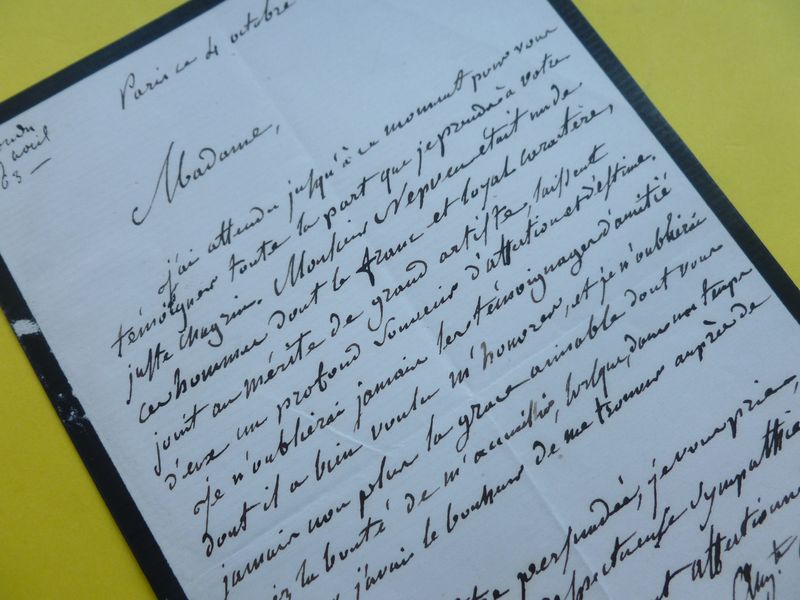 Paris ce 4 octobre
avril
63 —
Madame,
J'ai attendu jusqu'à ce moment pour vous
témoigner toute la part que je prends à votre
juste chagrin. Monsieur Nepveu était un de
ces hommes dont le franc et loyal caractère,
joint au mérite de grand artiste, laissent
d'eux un profond souvenir d'affection et d'estime.
Je n'oublierai jamais les témoignages d'amitié
dont il a bien voulu m'honorer, et je n'oublierai
jamais non plus la grace aimable dont vous
la bonté de m'accueillir, lorsque, dans un temps
j'avais le bonheur de me trouver auprès de
persuadée, je vous prie,
respectueuse sympathie
attentionné
Aug.te